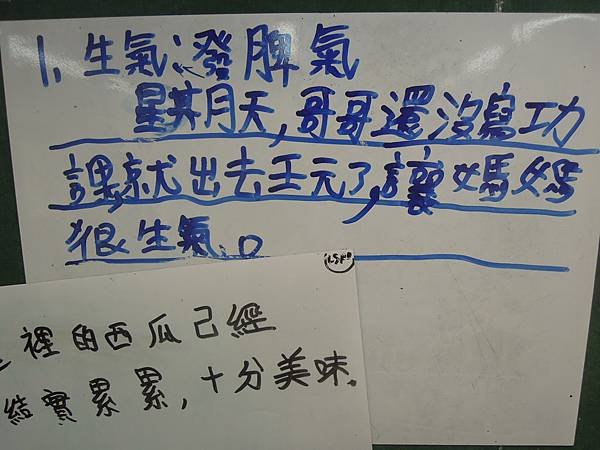 1. 生氣:發脾氣
星其月天,哥哥還沒寫功
課就出去王元了,讓媽媽
很生氣。
裡的西瓜已經
結實累累,十分美味.